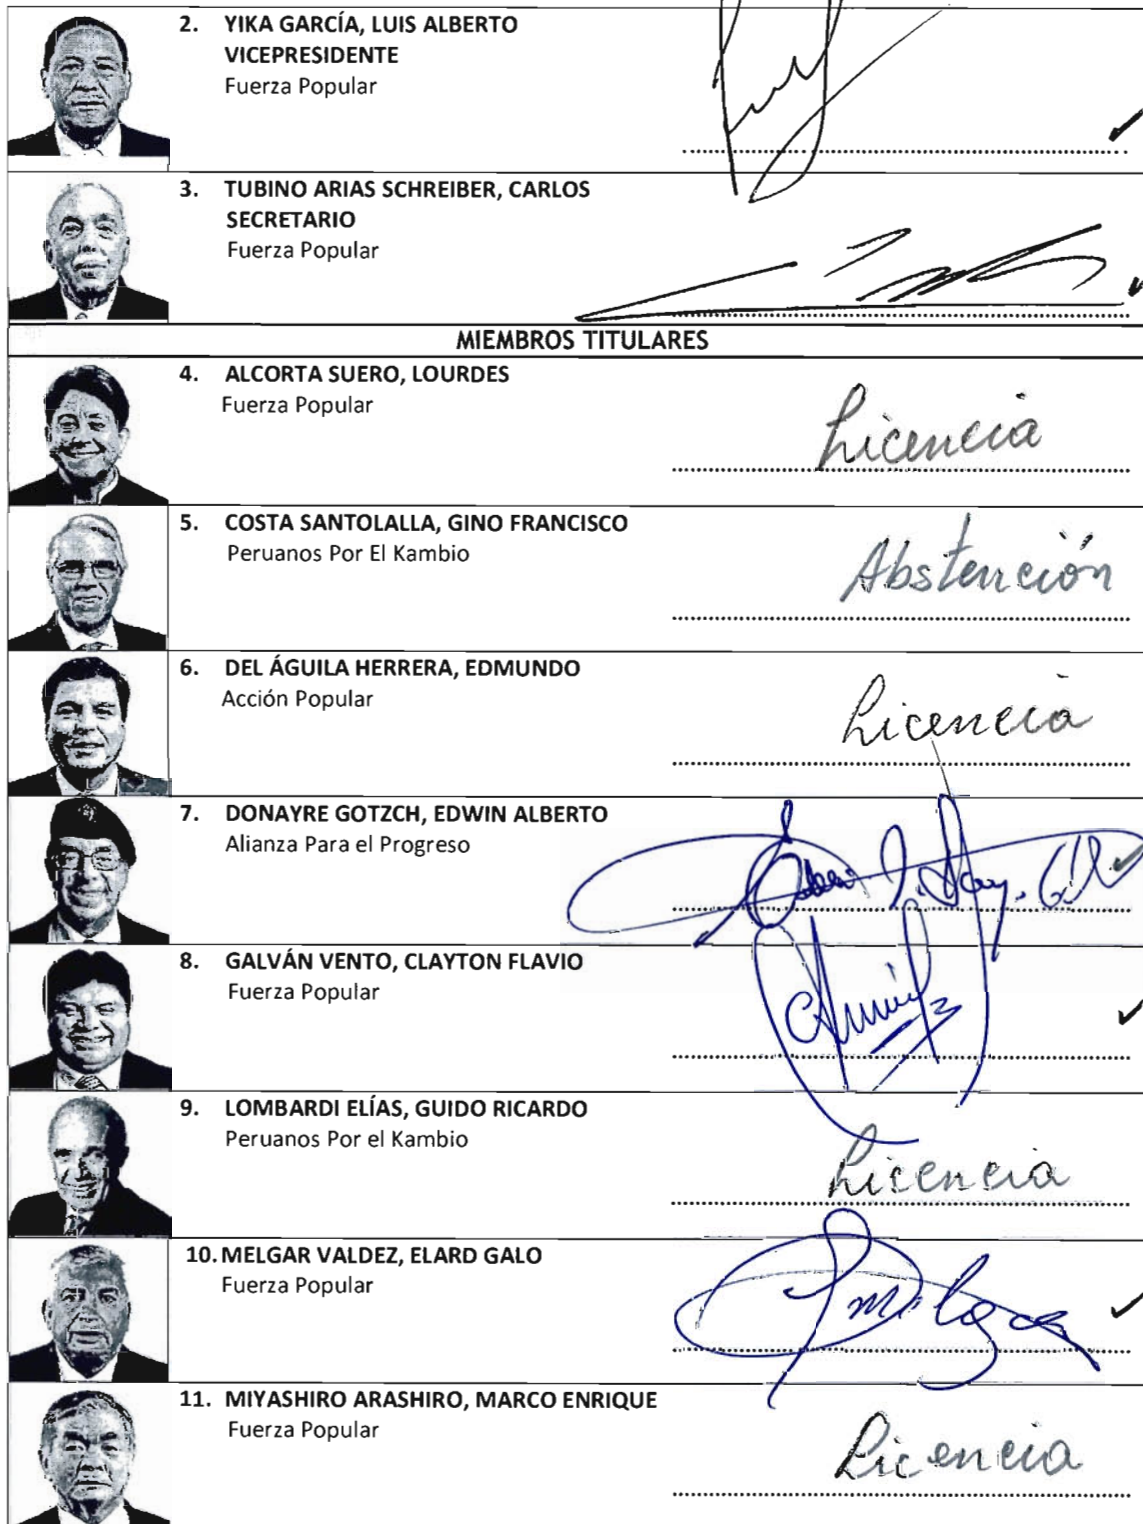 2. YIKA GARCÍA, LUIS ALBERTO
VICEPRESIDENTE
Fuerza Popular
3. TUBINO ARIAS SCHREIBER, CARLOS
SECRETARIO
Fuerza Popular
MIEMBROS TITULARES
4. ALCORTA SUERO, LOURDES
Fuerza Popular
Licencia
5. COSTA SANTOLALLA, GINO FRANCISCO
Peruanos Por El Kambio
Abstención
6. DEL ÁGUILA HERRERA, EDMUNDO
Acción Popular
Licencia
7. DONAYRE GOTZCH, EDWIN ALBERTO
Alianza Para el Progreso
8. GALVÁN VENTO, CLAYTON FLAVIO
Fuerza Popular
9. LOMBARDI ELÍAS, GUIDO RICARDO
Peruanos Por el Kambio
Licencia
10. MELGAR VALDEZ, ELARD GALO
Fuerza Popular
11. MIYASHIRO ARASHIRO, MARCO ENRIQUE
Fuerza Popular
Licencia